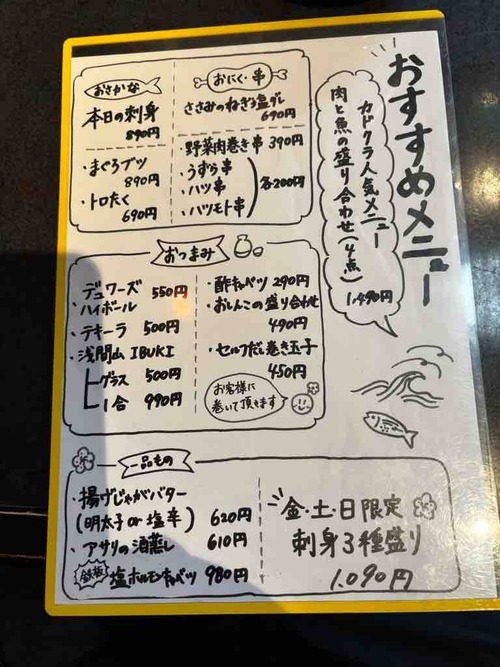 おすすめメニュー
カドクラ人気メニュー
肉と魚の盛り合わせ(4点)
1,490円
おさかな
本日の刺身
890円
・まぐろブツ
890円
・トロたく
690円
おにく・串
ささみのねぎ塩ダレ
690円
・野菜肉巻き串 390円
・うずら串
・ハツ串
・ハツモト串
各200円
おつまみ
・デュワーズ
ハイボール 550円
・テキーラ 500円
・浅間山 IBUKI
グラス 500円
1合 990円
・酢キャベツ 290円
・おしんこの盛り合わせ
490円
・セルフだし巻き玉子
450円
お客様に
巻いて頂きます
一品もの
・揚げじゃがバター
(明太子 or 塩辛) 620円
・アサリの酒蒸し 610円
鉄板 塩ホルモンキャベツ 980円
金・土・日限定
刺身3種盛り
1,090円